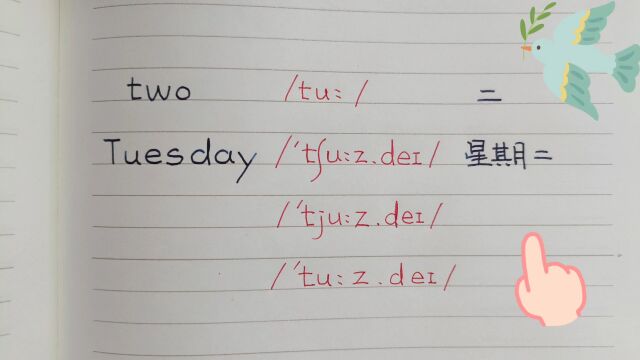 two /tu:/ 二
Tuesday /'tʃu:z.deɪ/ 星期二
/'tju:z.deɪ/
/'tu:z.deɪ/